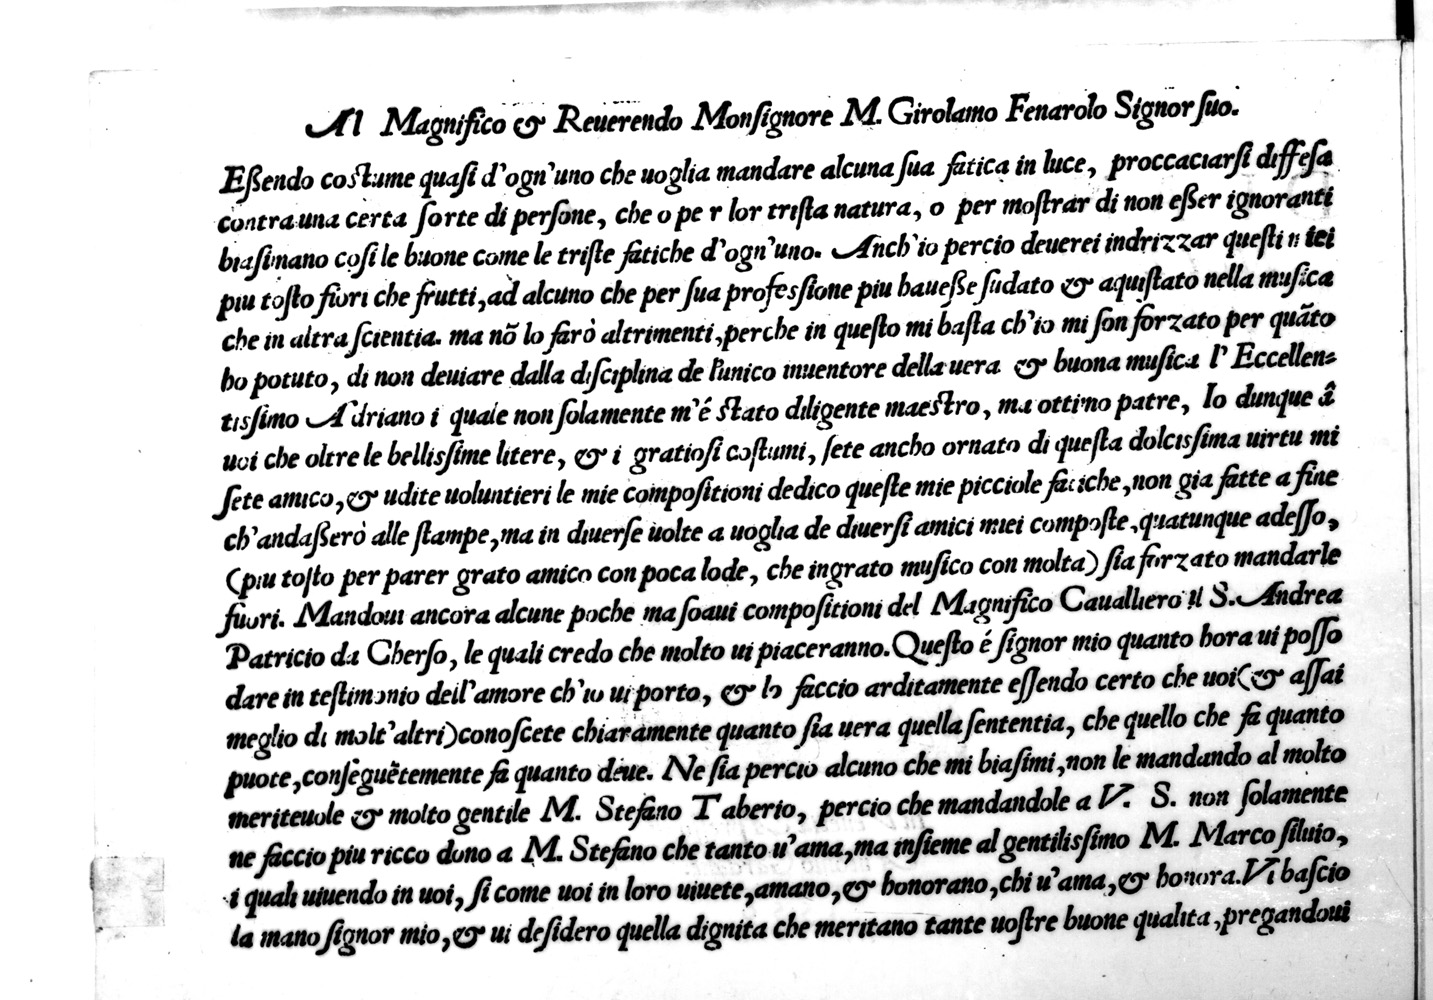 Al Magnifico & Reuerendo Monsignore M. Girolamo Fenarolo Signor suo.
Eßendo costume quasi d'ogn'uno che uoglia mandare alcuna sua fatica in luce, proccaciarsi diffesa
contra una certa sorte di persone, che o pe r lor trista natura, o per mostrar di non eßer ignoranti
biasimano cosi le buone come le triste fatiche d'ogn'uno. Anch'io percio deuerei indrizzar questi miei
piu tosto fiori che frutti, ad alcuno che per sua professione piu haueße sudato & aquistato nella musica
che in altra scientia. ma nõ lo farò altrimenti, perche in questo mi basta ch'io mi son forzato per quãto
ho potuto, di non deuiare dalla disciplina de l'unico inuentore della uera & buona musica l' Eccellen=
tissimo Adriano i quale non solamente m'é stato diligente maestro, ma ottimo patre, Io dunque â
uoi che oltre le bellissime litere, & i gratiosi costumi, sete ancho ornato di questa dolcissima uirtu mi
sete amico, & udite uoluntieri le mie compositioni dedico queste mie picciole fatiche, non gia fatte a fine
ch'andaßerò alle stampe, ma in diuerse uolte a uoglia de diuersi amici miei composte, quatunque adesso,
(piu tosto per parer grato amico con poca lode, che ingrato musico con molta) sia forzato mandarle
fuori. Mandoui ancora alcune poche ma soaui compositioni del Magnifico Caualliero il S. Andrea
Patricio da Cherso, le quali credo che molto ui piaceranno. Questo é signor mio quanto hora ui posso
dare in testimonio dell'amore ch'io ui porto, & lo faccio arditamente essendo certo che uoi (& assai
meglio di molt'altri) conoscete chiaramente quanto sia uera quella sententia, che quello che fa quanto
puote, conseguẽtemente fa quanto deue. Ne sia percio alcuno che mi biasimi, non le mandando al molto
meriteuole & molto gentile M. Stefano Taberio, percio che mandandole a V. S. non solamente
ne faccio piu ricco dono a M. Stefano che tanto u'ama, ma insieme al gentilissimo M. Marco siluio,
i quali uiuendo in uoi, si come uoi in loro uiuete, amano, & honorano, chi u'ama, & honora. Vi bascio
la mano signor mio, & ui desidero quella dignita che meritano tante uostre buone qualita, pregandoui